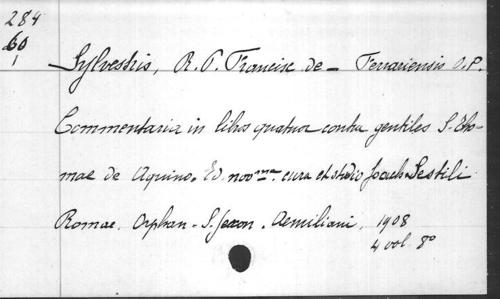 284
60
1
Sylvestris, R. P. Francisc de - Ferrariensis O.P.
Commentaria in libros quatuor contra gentiles S. Tho-
mae de Aquino. Ed. nov^ma cura et studio Joach. Sestili
Romae. Orphan. S. Hieron. Aemiliani, 1908
4 vol. 8°